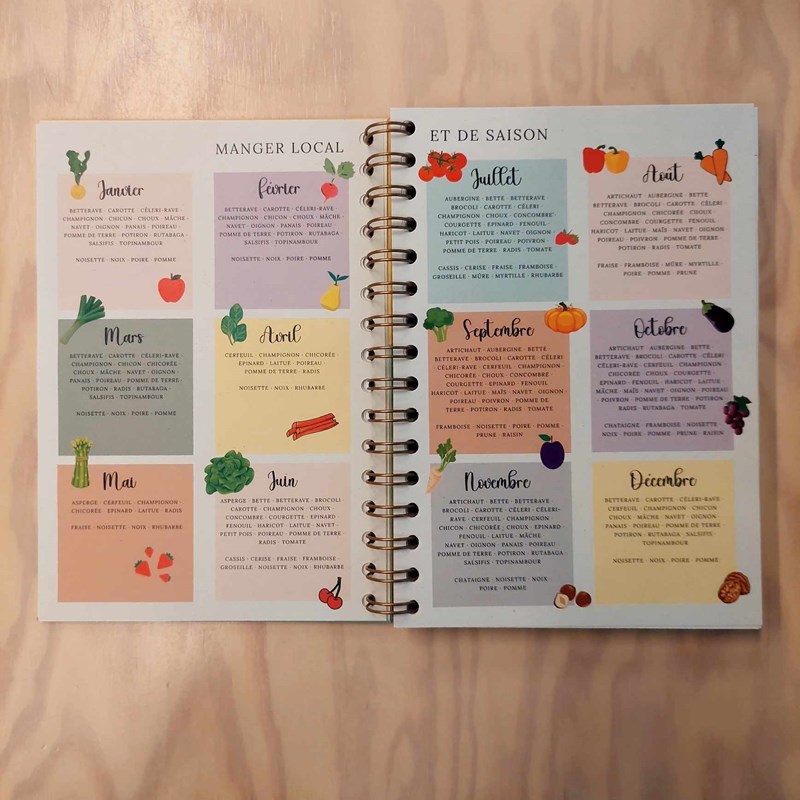 MANGER LOCAL
Janvier
BETTERAVE · CAROTTE · CÉLERI-RAVE ·
CHAMPIGNON · CHICON · CHOUX · MÂCHE ·
NAVET · OIGNON · PANAIS · POIREAU ·
POMME DE TERRE · POTIRON · RUTABAGA ·
SALSIFIS · TOPINAMBOUR
NOISETTE · NOIX · POIRE · POMME
Février
BETTERAVE · CAROTTE · CÉLERI-RAVE ·
CHAMPIGNON · CHICON · CHOUX · MÂCHE ·
NAVET · OIGNON · PANAIS · POIREAU ·
POMME DE TERRE · POTIRON · RUTABAGA ·
SALSIFIS · TOPINAMBOUR
NOISETTE · NOIX · POIRE · POMME
Mars
BETTERAVE · CAROTTE · CÉLERI-RAVE ·
CHAMPIGNON · CHICON · CHICORÉE ·
CHOUX · MÂCHE · NAVET · OIGNON ·
PANAIS · POIREAU · POMME DE TERRE ·
POTIRON · RADIS · RUTABAGA ·
SALSIFIS · TOPINAMBOUR
NOISETTE · NOIX · POIRE · POMME
Avril
CERFEUIL · CHAMPIGNON · CHICORÉE ·
EPINARD · LAITUE · POIREAU ·
POMME DE TERRE · RADIS
NOISETTE · NOIX · RHUBARBE
Mai
ASPERGE · CERFEUIL · CHAMPIGNON ·
CHICORÉE · EPINARD · LAITUE · RADIS
FRAISE · NOISETTE · NOIX · RHUBARBE
Juin
ASPERGE · BETTE · BETTERAVE · BROCOLI ·
CAROTTE · CHAMPIGNON · CHOUX ·
CONCOMBRE · COURGETTE · EPINARD ·
FENOUIL · HARICOT · LAITUE · NAVET ·
PETIT POIS · POIREAU · POMME DE TERRE ·
RADIS · TOMATE
CASSIS · CERISE · FRAISE · FRAMBOISE ·
GROSEILLE · NOISETTE · NOIX · RHUBARBE
ET DE SAISON
Juillet
AUBERGINE · BETTE · BETTERAVE ·
BROCOLI · CAROTTE · CÉLERI ·
CHAMPIGNON · CHOUX · CONCOMBRE ·
COURGETTE · EPINARD · FENOUIL ·
HARICOT · LAITUE · NAVET · OIGNON ·
PETIT POIS · POIREAU · POIVRON ·
POMME DE TERRE · RADIS · TOMATE
CASSIS · CERISE · FRAISE · FRAMBOISE ·
GROSEILLE · MÛRE · MYRTILLE · RHUBARBE
Août
ARTICHAUT · AUBERGINE · BETTE ·
BETTERAVE · BROCOLI · CAROTTE · CÉLERI ·
CHAMPIGNON · CHICORÉE · CHOUX ·
CONCOMBRE · COURGETTE · FENOUIL ·
HARICOT · LAITUE · MAÏS · NAVET · OIGNON ·
POIREAU · POIVRON · POMME DE TERRE ·
POTIRON · RADIS · TOMATE
FRAISE · FRAMBOISE · MÛRE · MYRTILLE ·
POIRE · POMME · PRUNE
Septembre
ARTICHAUT · AUBERGINE · BETTE ·
BETTERAVE · BROCOLI · CAROTTE · CÉLERI
· CÉLERI-RAVE · CERFEUIL · CHAMPIGNON ·
CHICORÉE · CHOUX · CONCOMBRE ·
COURGETTE · EPINARD · FENOUIL ·
HARICOT · LAITUE · MAÏS · NAVET · OIGNON ·
POIREAU · POIVRON · POMME DE
TERRE · POTIRON · RADIS · TOMATE
FRAMBOISE · NOISETTE · POIRE · POMME ·
PRUNE · RAISIN
Octobre
ARTICHAUT · AUBERGINE · BETTE ·
BETTERAVE · BROCOLI · CAROTTE · CÉLERI ·
CÉLERI-RAVE · CERFEUIL · CHAMPIGNON ·
CHICORÉE · CHOUX · COURGETTE ·
EPINARD · FENOUIL · HARICOT · LAITUE ·
MÂCHE · MAÏS · NAVET · OIGNON · POIREAU ·
POIVRON · POMME DE TERRE · POTIRON ·
RADIS · RUTABAGA · TOMATE
CHATAIGNE · FRAMBOISE · NOISETTE ·
NOIX · POIRE · POMME · PRUNE · RAISIN
Novembre
ARTICHAUT · BETTE · BETTERAVE ·
BROCOLI · CAROTTE · CÉLERI · CÉLERI-
RAVE · CERFEUIL · CHAMPIGNON ·
CHICON · CHICORÉE · CHOUX · EPINARD ·
FENOUIL · LAITUE · MÂCHE ·
NAVET · OIGNON · PANAIS · POIREAU ·
POMME DE TERRE · POTIRON · RUTABAGA ·
SALSIFIS · TOPINAMBOUR
CHATAIGNE · NOISETTE · NOIX ·
POIRE · POMME
Décembre
BETTERAVE · CAROTTE · CÉLERI-RAVE ·
CERFEUIL · CHAMPIGNON · CHICON ·
CHOUX · MÂCHE · NAVET · OIGNON ·
PANAIS · POIREAU · POMME DE TERRE ·
POTIRON · RUTABAGA · SALSIFIS ·
TOPINAMBOUR
NOISETTE · NOIX · POIRE · POMME